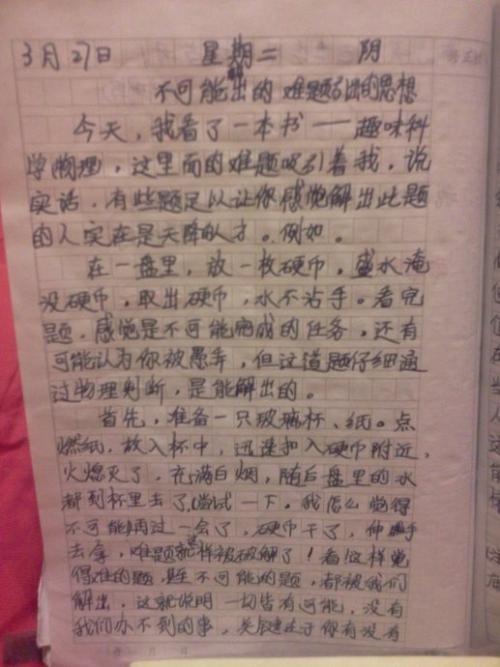 3月27日 星期二 阴
不可能解出的难题引出的思想
今天，我看了一本书——趣味科
学物理，这里面的难题吸引着我，说
实话，有些题足以让你感觉解出此题
的人实在是天降的人才。例如。
在一盘里，放一枚硬币，盛水淹
没硬币，取出硬币，水不沾手。看完
题，感觉是不可能完成的任务，还有
可能认为你被愚弄，但这道题仔细通
过物理判断，是能解出的。
首先，准备一只玻璃杯、纸。点
燃纸，放入杯中，迅速扣入硬币附近，
火熄灭了，充满白烟，随后盘里的水
都到杯里去了，尝试一下。我怎么觉得
不可能再过一会了，硬币干了，伸手
去拿，难题就这样被破解了！看这样觉
得难的题，甚至不可能的题，都被我们
解出，这就说明一切皆有可能，没有
我们办不到的事，关键在于你有没有